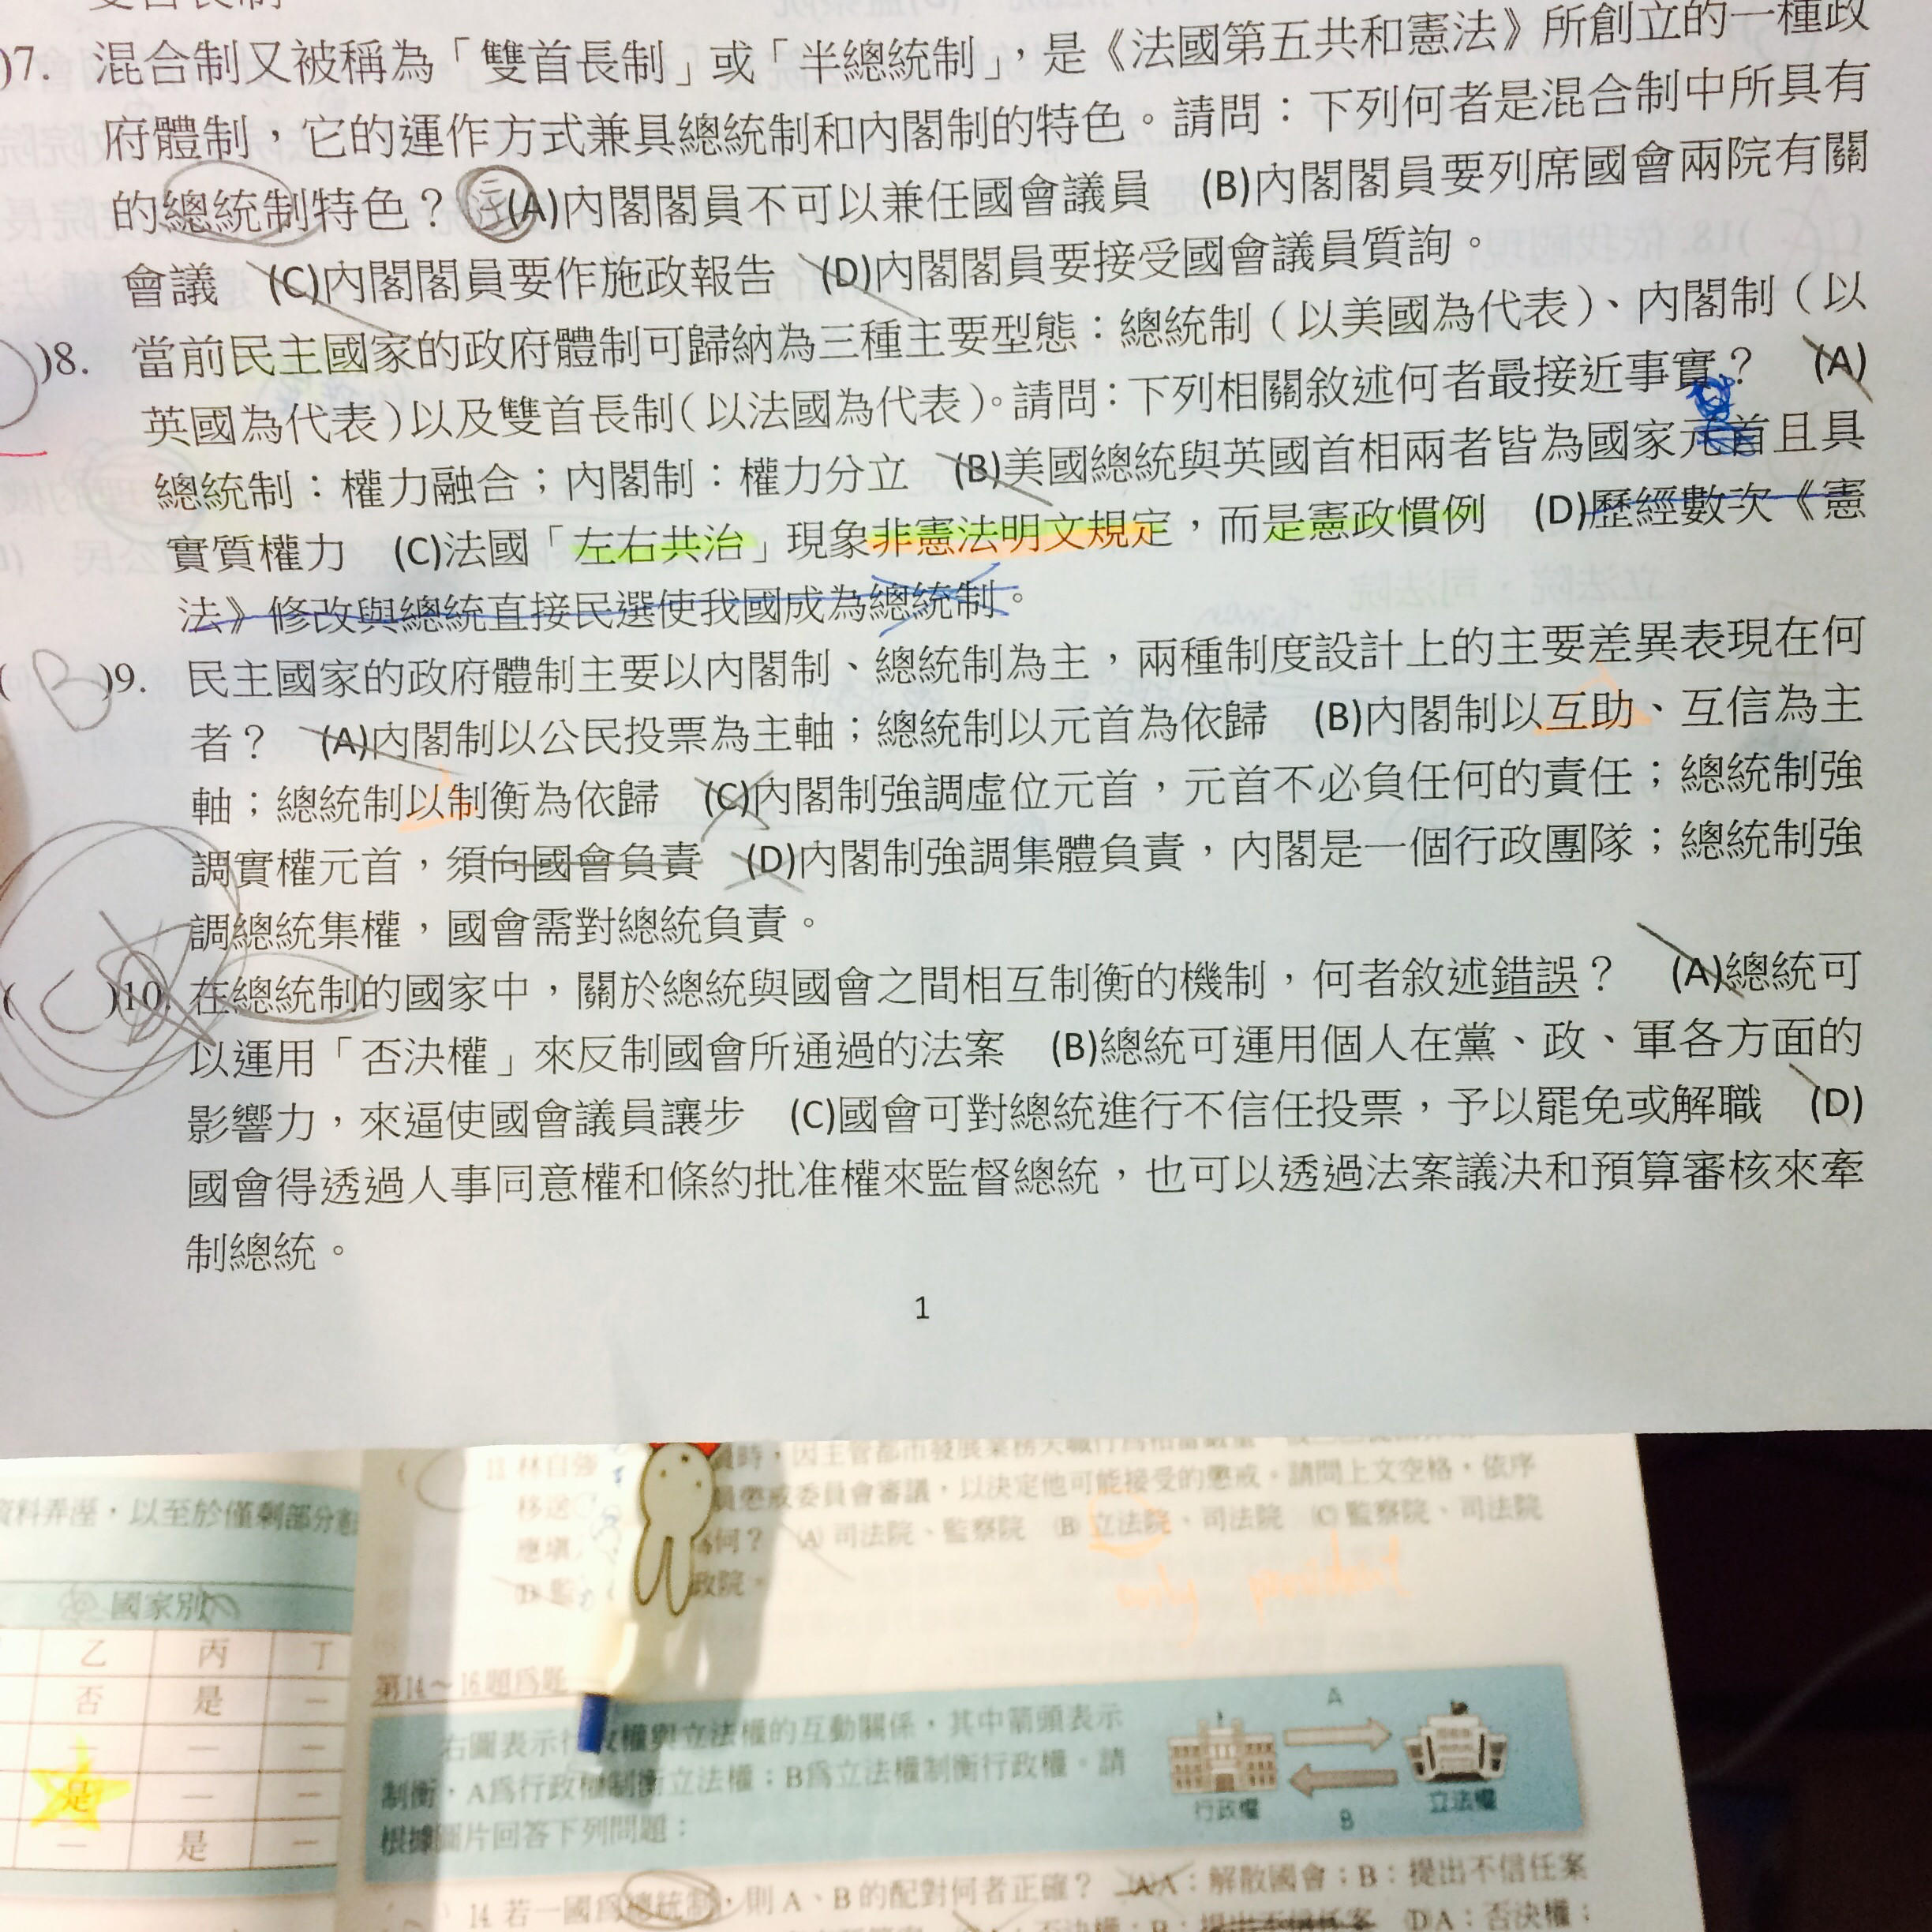 )7. 混合制又被稱為「雙首長制」或「半總統制」，是《法國第五共和憲法》所創立的一種政
府體制，它的運作方式兼具總統制和內閣制的特色。請問：下列何者是混合制中所具有
的總統制特色？ (A)內閣閣員不可以兼任國會議員 (B)內閣閣員要列席國會兩院有關
會議 (C)內閣閣員要作施政報告 (D)內閣閣員要接受國會議員質詢。
)8. 當前民主國家的政府體制可歸納為三種主要型態：總統制（以美國為代表）、內閣制（以
英國為代表）以及雙首長制（以法國為代表）。請問：下列相關敘述何者最接近事實？ (A)
總統制：權力融合；內閣制：權力分立 (B)美國總統與英國首相兩者皆為國家元首且具
實質權力 (C)法國「左右共治」現象非憲法明文規定，而是憲政慣例 (D)歷經數次《憲
法》修改與總統直接民選使我國成為總統制。
( B )9. 民主國家的政府體制主要以內閣制、總統制為主，兩種制度設計上的主要差異表現在何
者？ (A)內閣制以公民投票為主軸；總統制以元首為依歸 (B)內閣制以互助、互信為主
軸；總統制以制衡為依歸 (C)內閣制強調虛位元首，元首不必負任何的責任；總統制強
調實權元首，須向國會負責 (D)內閣制強調集體負責，內閣是一個行政團隊；總統制強
調總統集權，國會需對總統負責。
( C )10. 在總統制的國家中，關於總統與國會之間相互制衡的機制，何者敘述錯誤？ (A)總統可
以運用「否決權」來反制國會所通過的法案 (B)總統可運用個人在黨、政、軍各方面的
影響力，來逼使國會議員讓步 (C)國會可對總統進行不信任投票，予以罷免或解職 (D)
國會得透過人事同意權和條約批准權來監督總統，也可以透過法案議決和預算審核來牽
制總統。
1
資料弄溼，以至於僅剩部分
國家別
乙 丙 丁
否 是 —
— — —
是 — —
— 是 —
13 林自強
移送 員懲戒委員會審議，以決定他可能接受的懲戒。請問上文空格，依序
應填 為何？ (A) 司法院、監察院 (B) 立法院、司法院 (C) 監察院、司法院
(D) 監 政院。
第14～16題為題
右圖表示行政權與立法權的互動關係，其中箭頭表示
制衡，A為行政權制衡立法權；B為立法權制衡行政權。請
根據圖片回答下列問題：
A
行政權 立法權
B
14 若一國為總統制，則 A、B 的配對何者正確？ (A)A：解散國會；B：提出不信任案
(D)A：否決權；